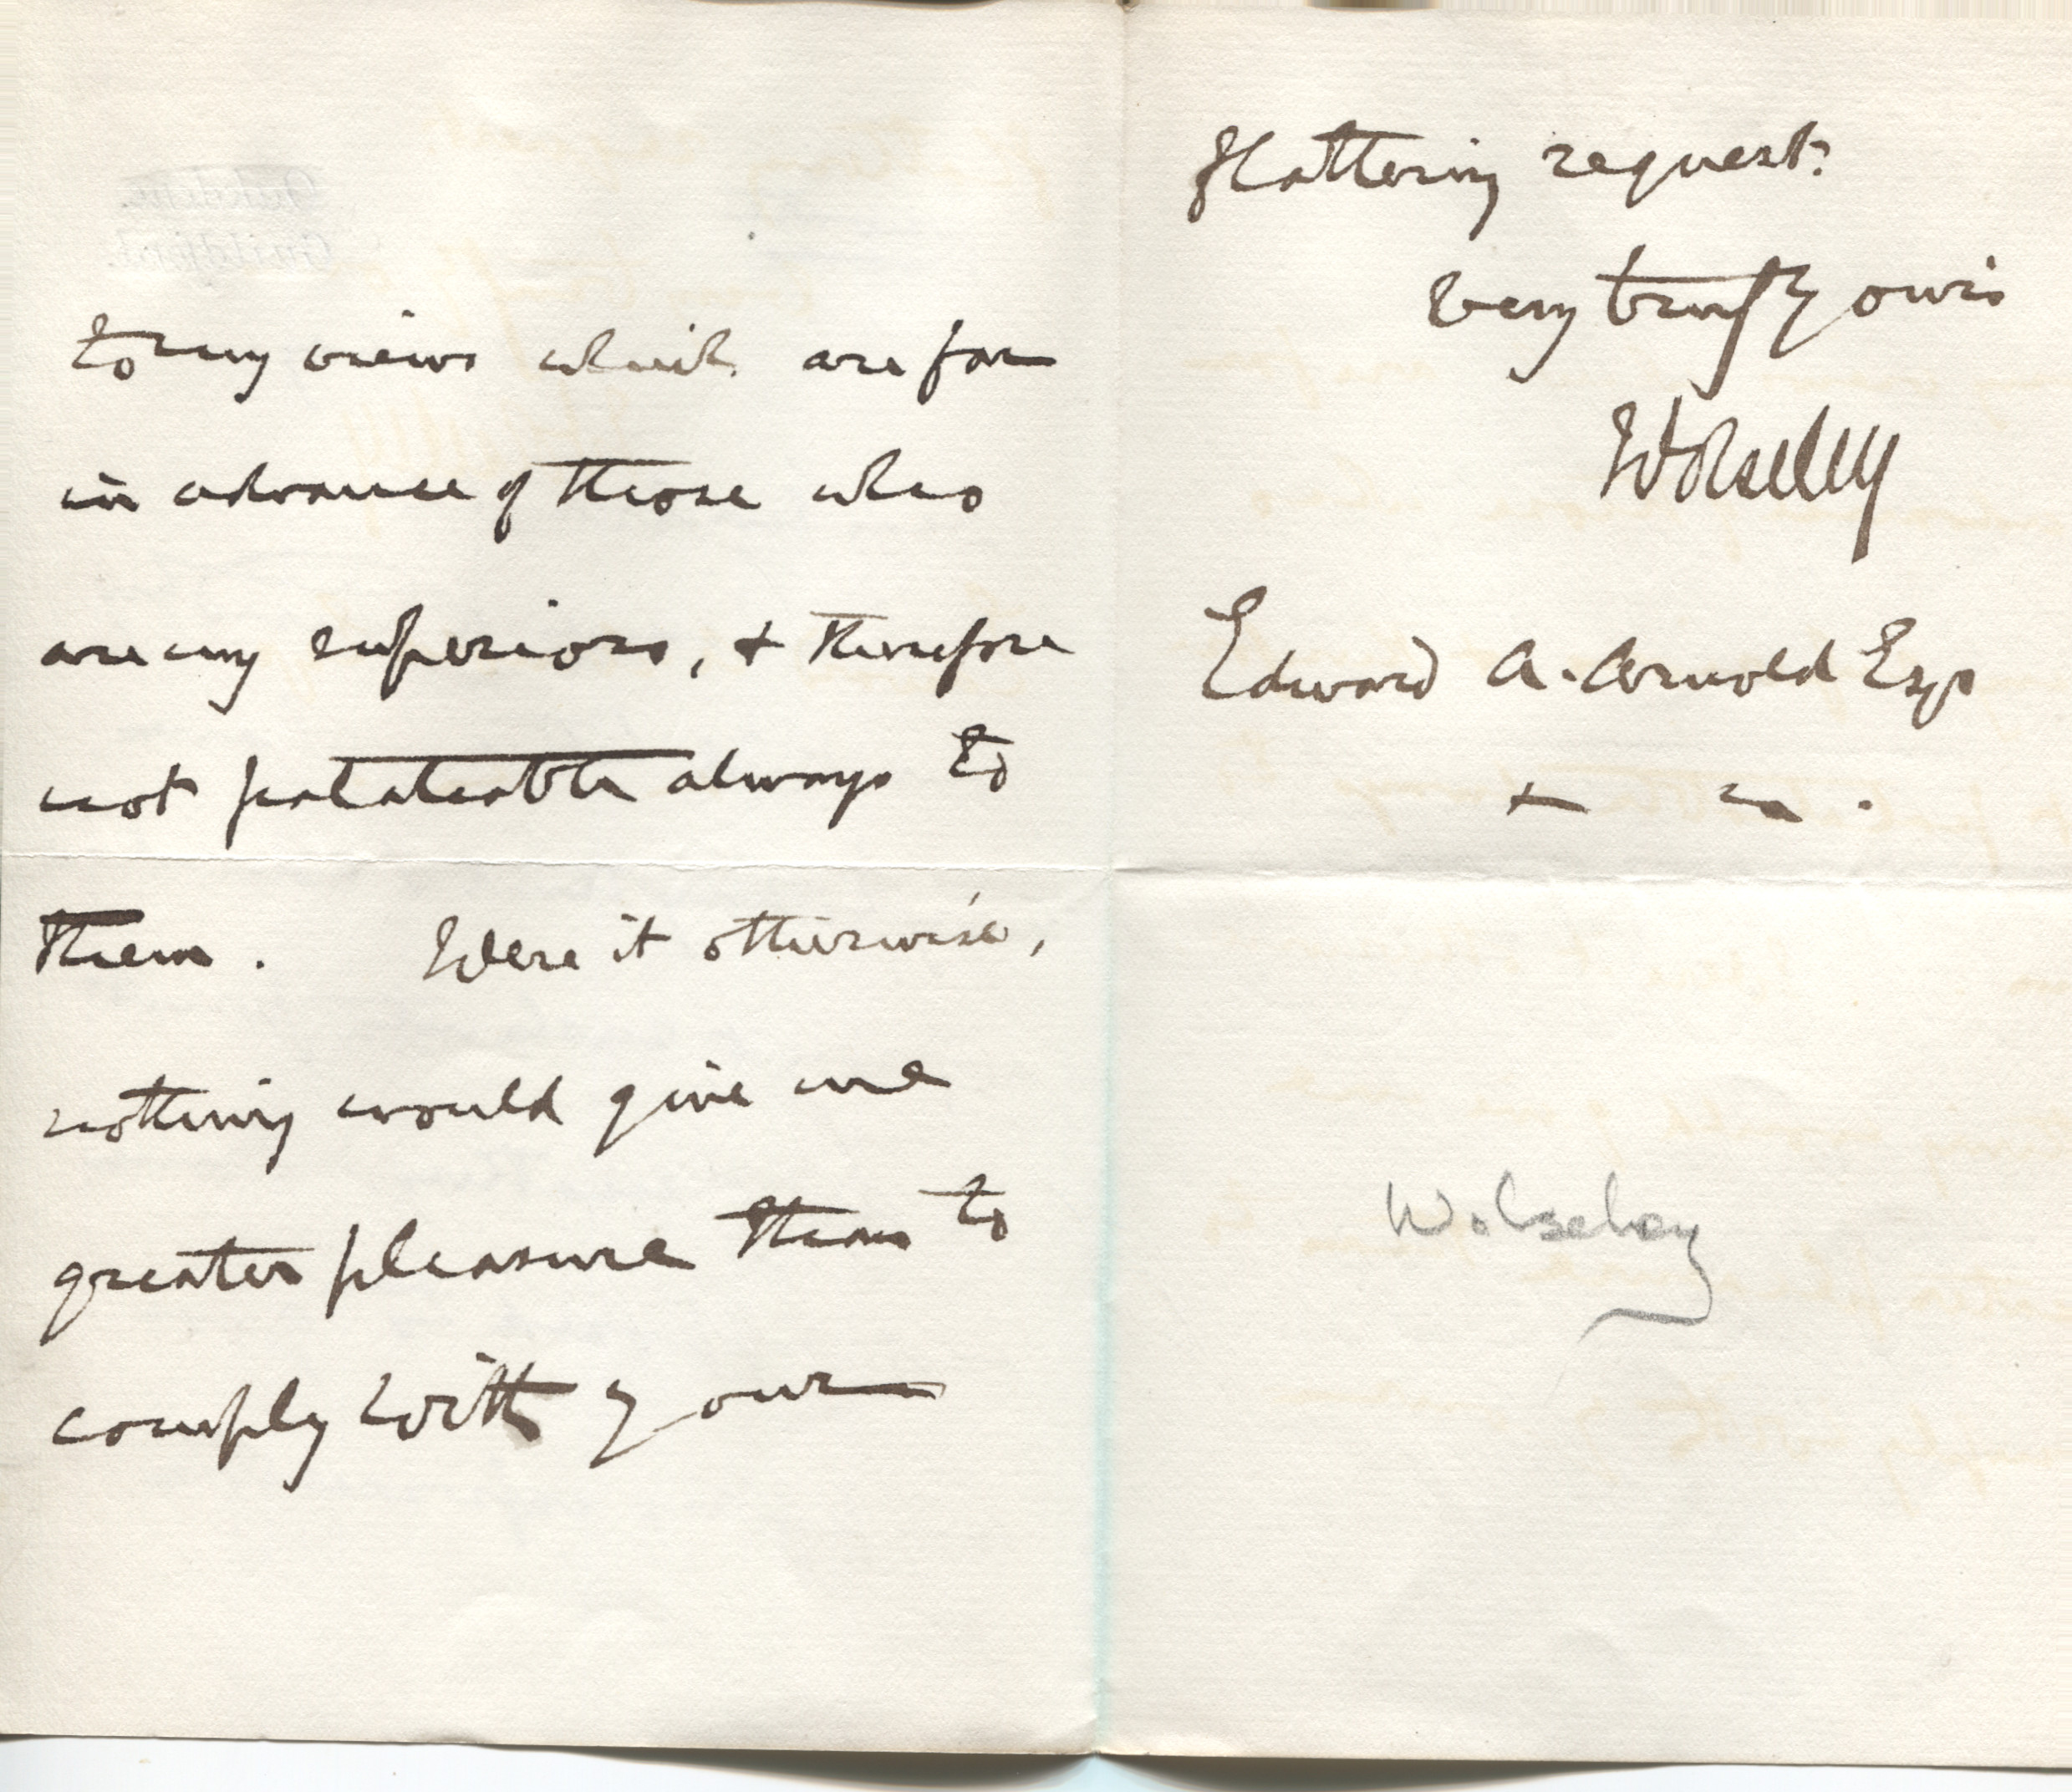 to my views which are far
in advance of those who
are my superiors, & therefore
not palatable always to
them. Were it otherwise,
nothing would give me
greater pleasure than to
comply with your
flattering request.
Very truly yours
Wolseley
Edward A. Arnold Esq
Wolseley